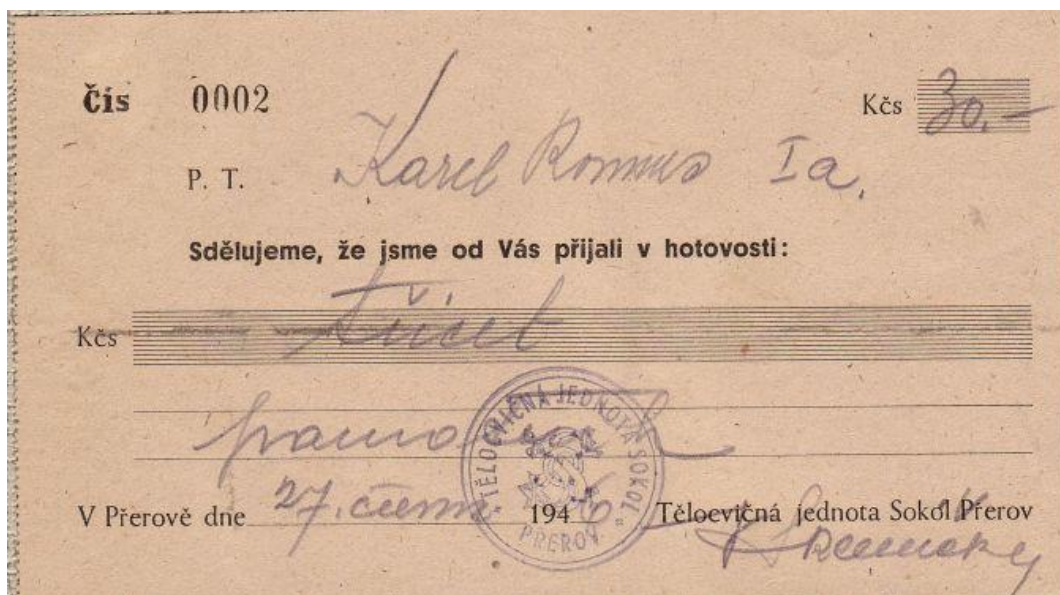 Čís 0002 Kčs 30.-
P. T. Karel Ia.
Sdělujeme, že jsme od Vás přijali v hotovosti:
Kčs třicet
V Přerově dne 27. června 1946 Tělocvičná jednota Sokol Přerov
TĚLOCVIČNÁ JEDNOTA SOKOL
PŘEROV